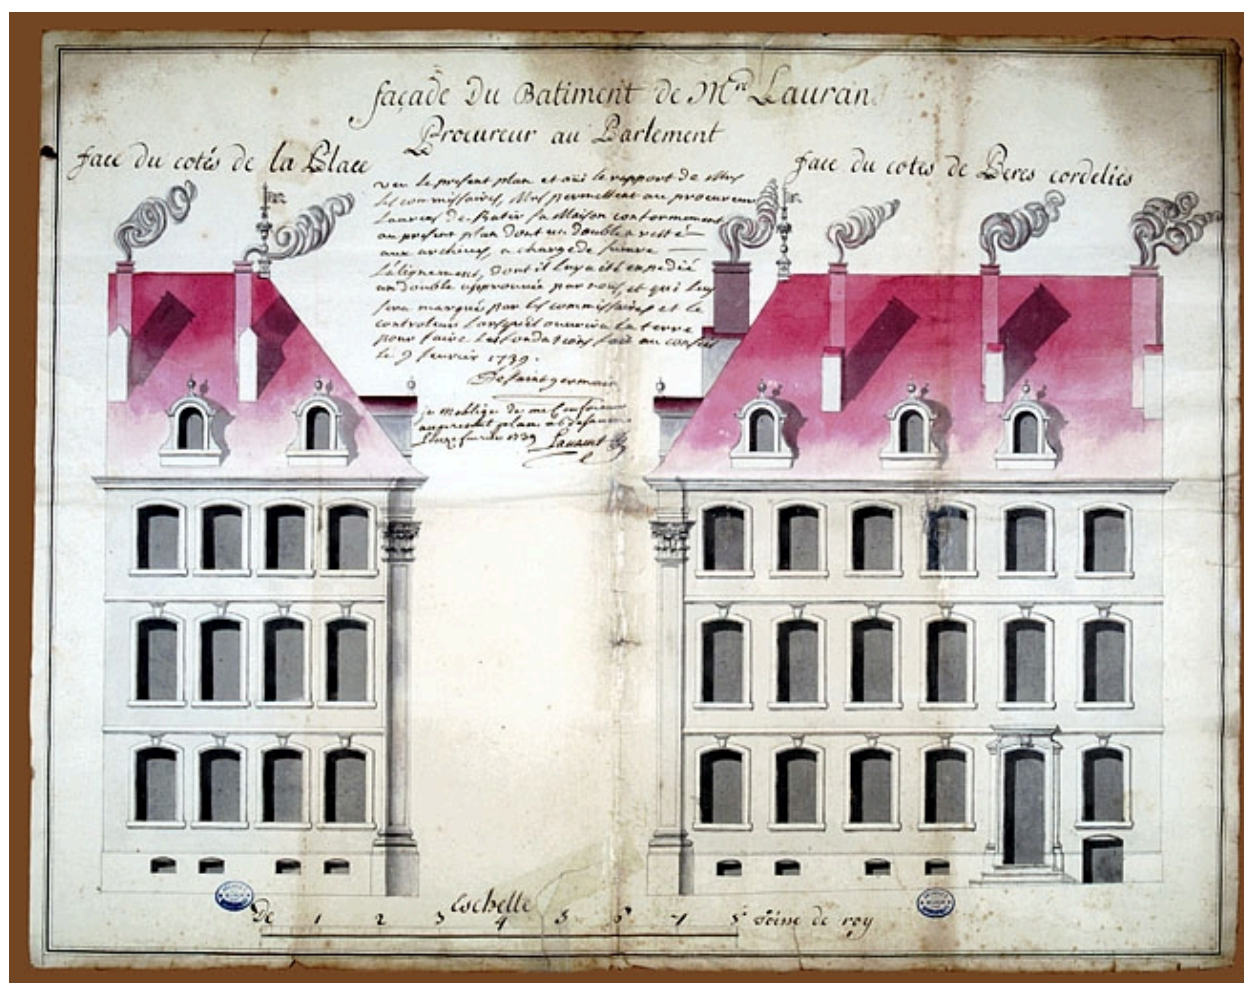 façade Du Batiment de Mre Lauran
Procureur au Parlement
face du cotés de la Place
face du cotés de Peres cordeliés
veu le present plan et oüi le rapport de Mes
les commissaires, Mes permettent au procureur
Laurens de Batir sa Maison conformement
au present plan dont un double a resté
aux archives, a charge de suivre
l'alignement, dont il luy a été expedié
un double approuvée par nous, et qui luy
sera marqué par les commissaires et le
controleur lorsqu'il ouvrira la terre
pour faire les fondations fait au conseil
le 9 fevrier 1739.
De Saint germain
je m'oblige de me Conformer
au present plan
fevrier 1739 Laurent
Eschelle
De 1 2 3 4 5 6 7 8 Toise de roy